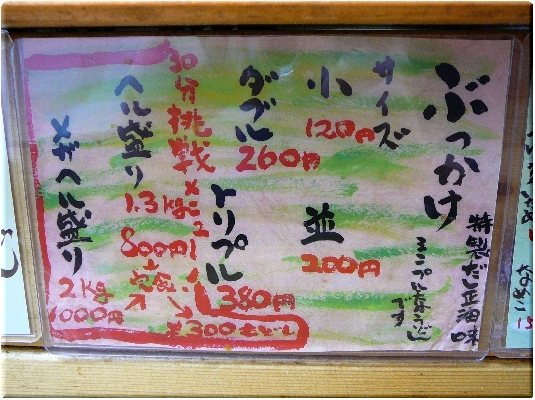 ぶっかけ
特製だし正油味
シンプルなうどん
です
サイズ
小
120円
並
200円
ダブル
260円
トリプル
380円
30分挑戦メニュー
ヘル盛り
1.3kg
800円
メガヘル盛り
2kg
1000円
完食
¥300もどし